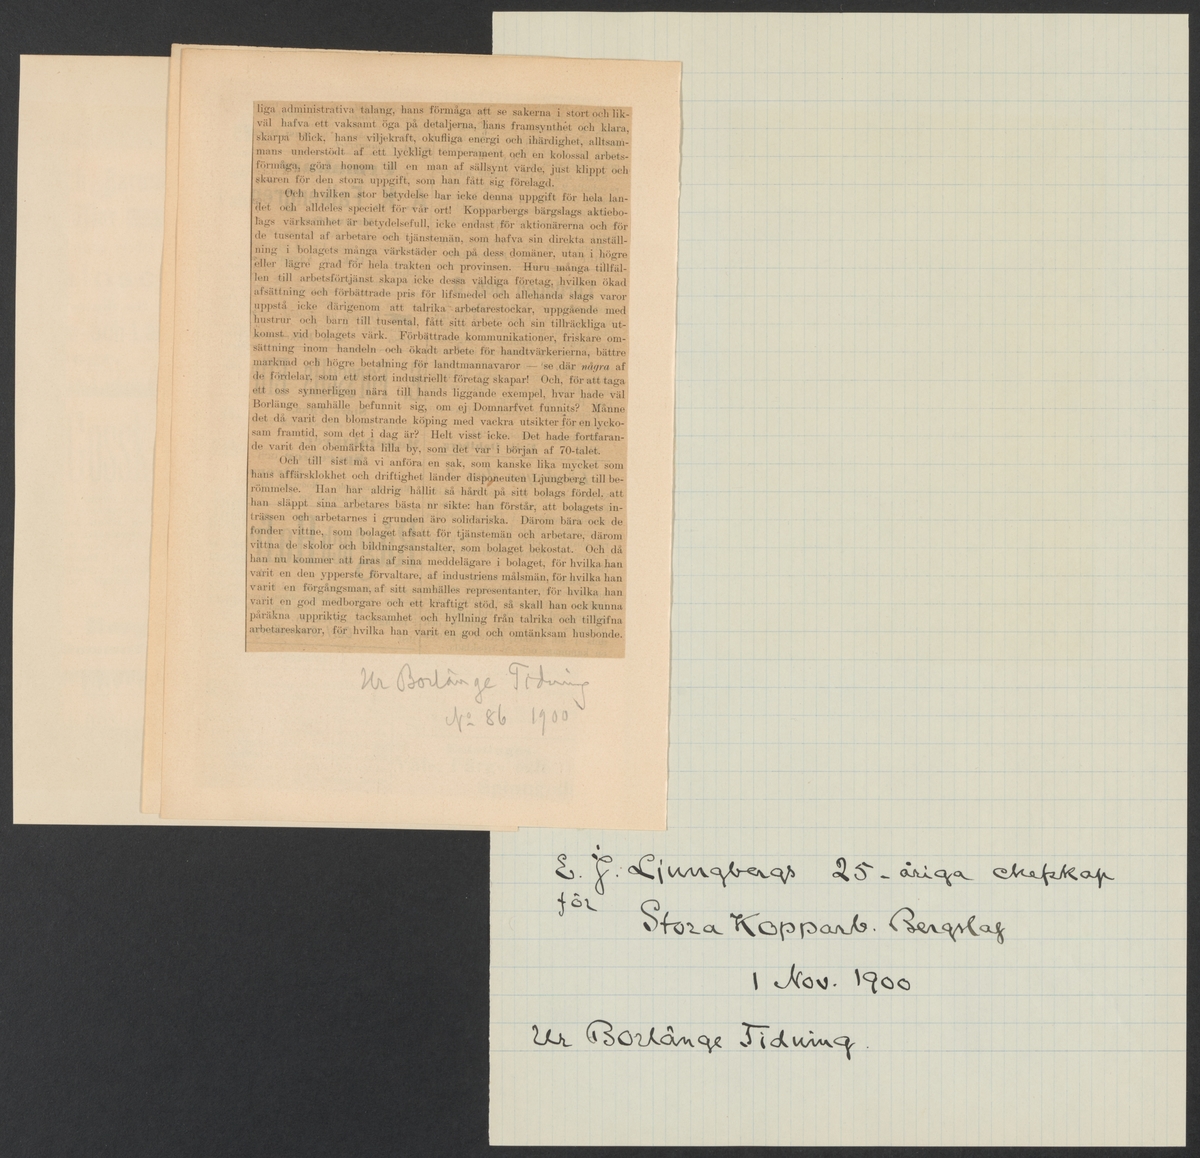 liga administrativa talang, hans förmåga att se sakerna i stort och lik-
väl hafva ett vaksamt öga på detaljerna, hans framsynthet och klara,
skarpa blick, hans viljekraft, okufliga energi och ihärdighet, alltsam-
mans understödt af ett lyckligt temperament och en kolossal arbets-
förmåga, göra honom till en man af sällsynt värde, just klippt och
skuren för den stora uppgift, som han fått sig förelagd.
Och hvilken stor betydelse har icke denna uppgift för hela lan-
det och alldeles specielt för vår ort! Kopparbergs bärgslags aktiebo-
lags värksamhet är betydelsefull, icke endast för aktionärerna och för
de tusental af arbetare och tjänstemän, som hafva sin direkta anställ-
ning i bolagets många värkstäder och på dess domäner, utan i högre
eller lägre grad för hela trakten och provinsen. Huru många tillfäl-
len till arbetsförtjänst skapa icke dessa väldiga företag, hvilken ökad
afsättning och förbättrade pris för lifsmedel och allehanda slags varor
uppstå icke därigenom att talrika arbetarestockar, uppgående med
hustrur och barn till tusental, fått sitt arbete och sin tillräckliga ut-
komst vid bolagets värk. Förbättrade kommunikationer, friskare om-
sättning inom handeln och ökadt arbete för handtvärkerierna, bättre
marknad och högre betalning för landtmannavaror — se där några af
de fördelar, som ett stort industriellt företag skapar! Och, för att taga
ett oss synnerligen nära till hands liggande exempel, hvar hade väl
Borlänge samhälle befunnit sig, om ej Domnarfvet funnits? Månne
det då varit den blomstrande köping med vackra utsikter för en lycko-
sam framtid, som det i dag är? Helt visst icke. Det hade fortfaran-
de varit den obemärkta lilla by, som det var i början af 70-talet.
Och till sist må vi anföra en sak, som kanske lika mycket som
hans affärsklokhet och driftighet länder disponenten Ljungberg till be-
römmelse. Han har aldrig hållit så hårdt på sitt bolags fördel, att
han släppt sina arbetares bästa nr sikte: han förstår, att bolagets in-
trässen och arbetarnes i grunden äro solidariska. Därom bära ock de
fonder vittne, som bolaget afsatt för tjänstemän och arbetare, därom
vittna de skolor och bildningsanstalter, som bolaget bekostat. Och då
han nu kommer att firas af sina meddelägare i bolaget, för hvilka han
varit en den ypperste förvaltare, af industriens målsmän, för hvilka han
varit en förgångsman, af sitt samhälles representanter, för hvilka han
varit en god medborgare och ett kraftigt stöd, så skall han ock kunna
påräkna uppriktig tacksamhet och hyllning från talrika och tillgifna
arbetareskaror, för hvilka han varit en god och omtänksam husbonde.
Ur Borlänge Tidning
No 86 1900
E. J. Ljungbergs 25-åriga chefskap
för Stora Kopparb. Bergslag
1 Nov. 1900
Ur Borlänge Tidning.